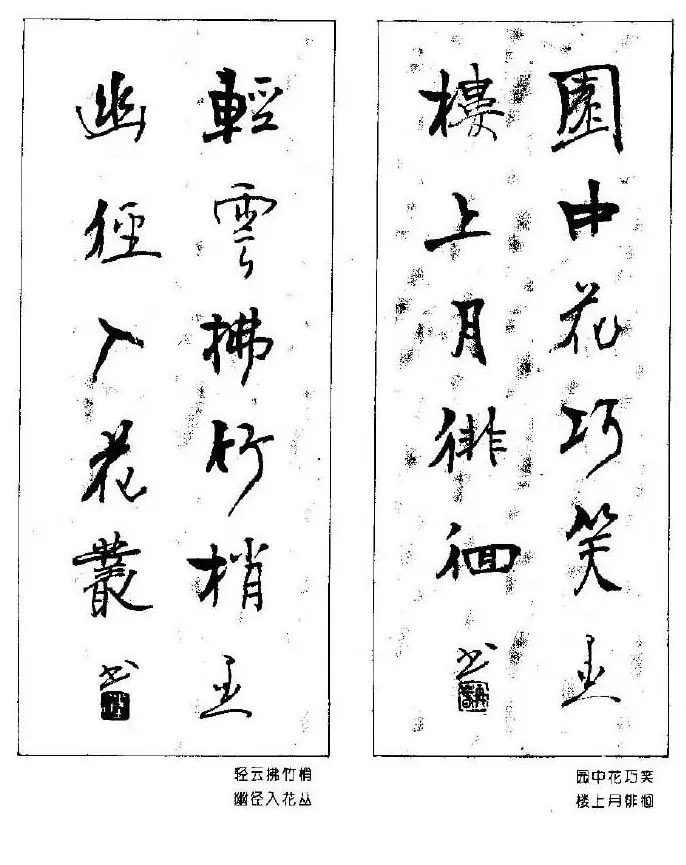 園中花巧笑
樓上月徘徊
书
园中花巧笑
楼上月徘徊
輕雲拂竹梢
幽徑入花叢
书
轻云拂竹梢
幽径入花丛